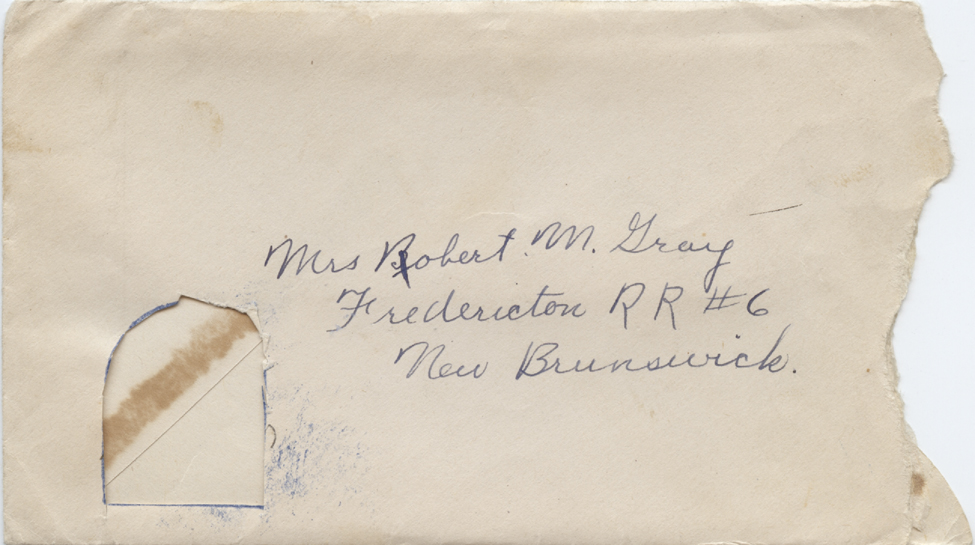 Mrs Robert. M. Gray
Fredericton R R #6
New Brunswick.